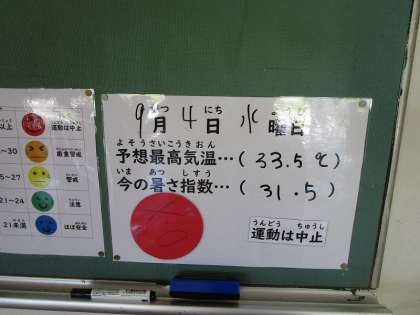 以上
運動は中止
~30
厳重警戒
5~27
警戒
21~24
注意
21未満
ほぼ安全
がつ にち
9月4日 水曜日
よそうさいこうきおん
予想最高気温…(33.5℃)
いま あつ しすう
今の暑さ指数…(31.5)
うんどう ちゅうし
運動は中止